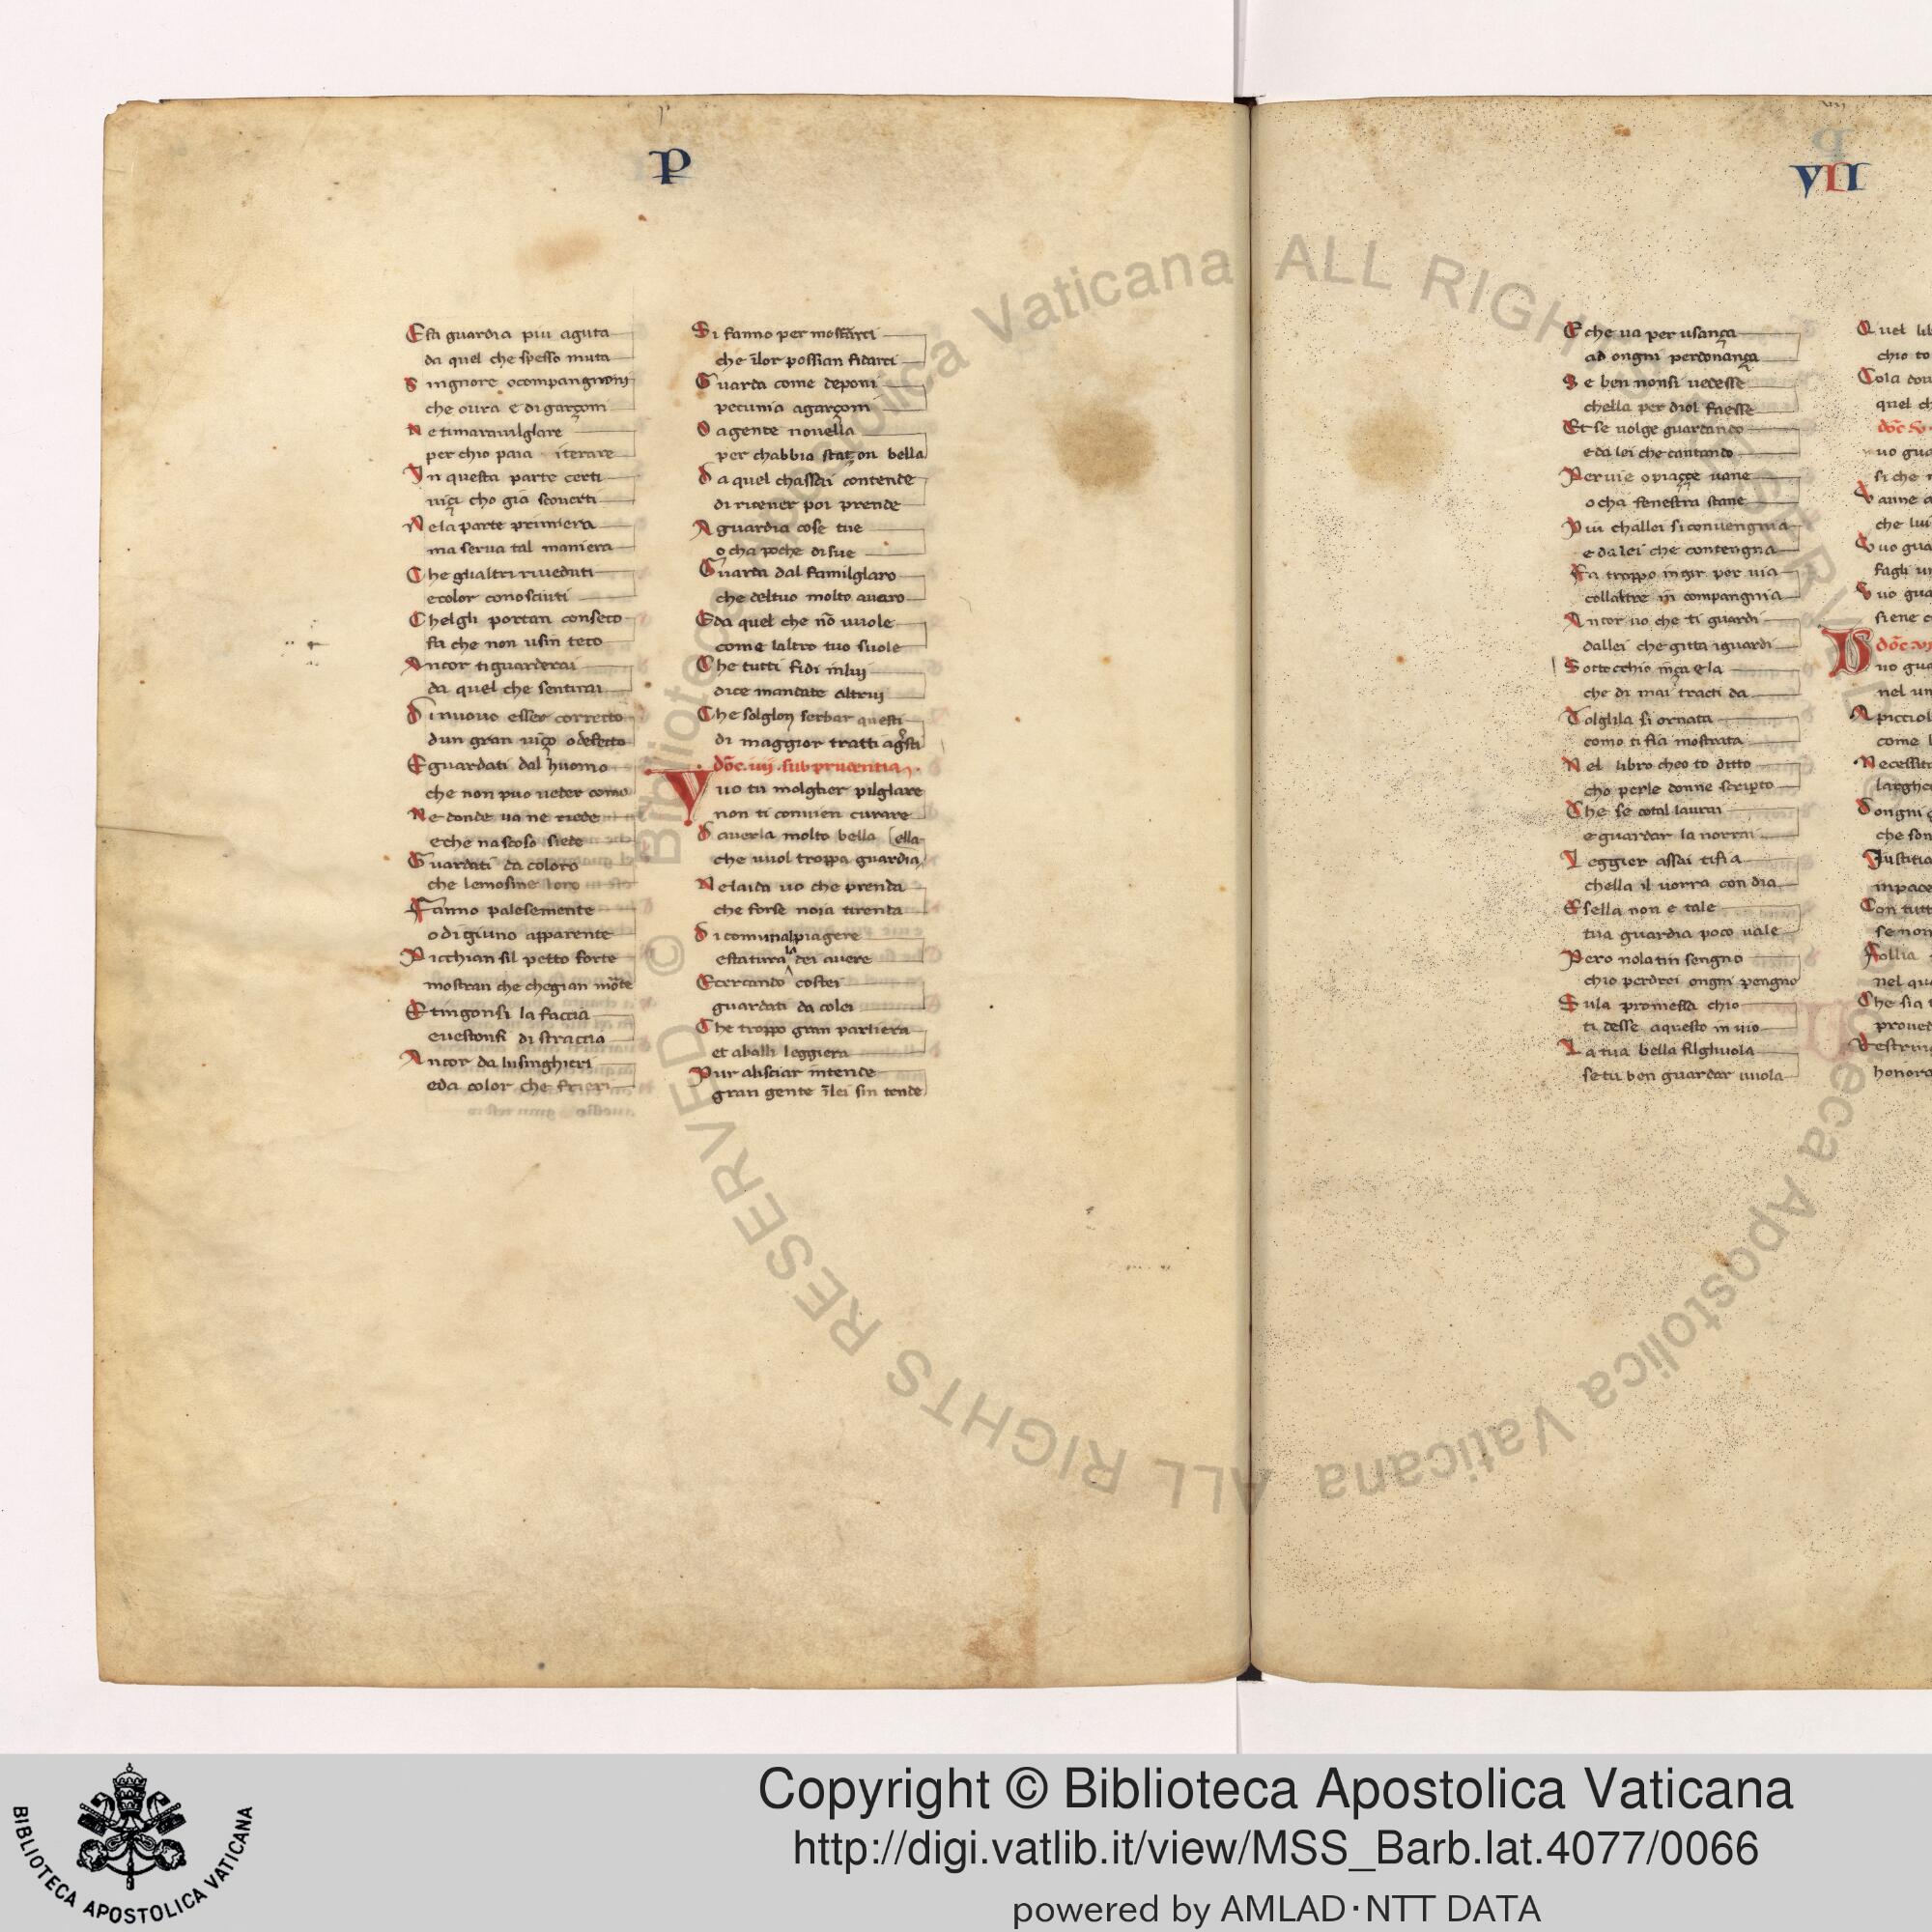 P
E sia guardia piu aguta
da quel che spesso muta
Singnore ocompangnoni
che oura e di garçoni
Ne timaravilglare
per chio paia iterare
In questa parte certi
viçi cho gia scouerti
Nela parte primiera
ma serua tal maniera
Che glialtri riueduti
ecolor conosciuti
Chelgli portan conseco
fa che non usin teco
Ancor tiguarderai
da quel che sentirai
Di nuouo esser corretto
dun gran viço odefecto
Eguardati dal huomo
che non puo ueder como
Ne donde ua ne riede
eche nascoso siede
Guardati da coloro
che lemosine loro
Fanno palesemente
odigiuno apparente
Picchiansil petto forte
mostran che chegian mōte
Etingonsi la faccia
euestonsi di straccia
Ancor da lusinghieri
eda color che
Si fanno per mostrarti
che ilor possian fidarti
Guarda come deponi
pecunia agarçoni
O agente nouella
per chabbia staçon bella
Da quel chassai contende
di ricener poi prende
A guardia cose tue
o cha poche di sue
Guarda dal familglaro
che deltuo molto auaro
Eda quel che nō uuole
come laltro tuo suole
Che tutti fidi inlui
dice mandate altrui
Che solglon serbar questi
di maggior tratti agsti
doc. iiij. sub prudentia.
Vuo tu molglier pilglare
non ti conuien curare
Dauerla molto bella [ella
che uuol troppa guardia
Nelaida uo che prenda
che forse noia tirenda
Di comunal piagere
e statura la dei auere
Ecercando costei
guardati da colei
Che troppo gran parliera
et aballi leggiera
Pur alisciar intende
gran gente ilei sin tende
VII
E che ua per usança
ad ongni perdonança
Se ben nonsi uedesse
chella per diol faesse
Et se uolge guardando
e da lei che cantando
Per uie opiaçce uane
o cha fenestra stane
Piu challei si conuengnia
e da lei che contengna
Fa troppo ingir per uia
collaltre in compangnia
Ancor uo che ti guardi
dallei che gitta iguardi
Sottocchio inça e la
che di mai tracti da
Tolglila si ornata
como ti fia mostrata
Nel libro cheo to ditto
cho perle donne scripto
Che se cotal laurai
e guardar la uorrai
Leggier assai tifia
chella il uorra con dia
Esella non e tale
tua guardia poco uale
Pero nolatin sengno
chio perdrei ongni pengno
Sula promessa chio
ti desse aquesto in uio
La tua bella filghuola
setu ben guardar uuola
Quel lib
chio to
Cola dou
quel ch
uo gua
si che
che lui
Vuo gua
fagli un
Vuo gua
siene c
uo gua
nel un
A picciol
come l
Necessita
largheç
Dongni
che son
Iustitia
inpace
Con tutt
se non
Follia
nel qua
Che sia
proued
Restrin
honora
ALL RIGHTS RESERVED © Biblioteca Apostolica Vaticana
ALL RIGHTS RESERVED © Biblioteca Apostolica Vaticana
BIBLIOTECA APOSTOLICA VATICANA
Copyright © Biblioteca Apostolica Vaticana
http://digi.vatlib.it/view/MSS_Barb.lat.4077/0066
powered by AMLAD·NTT DATA